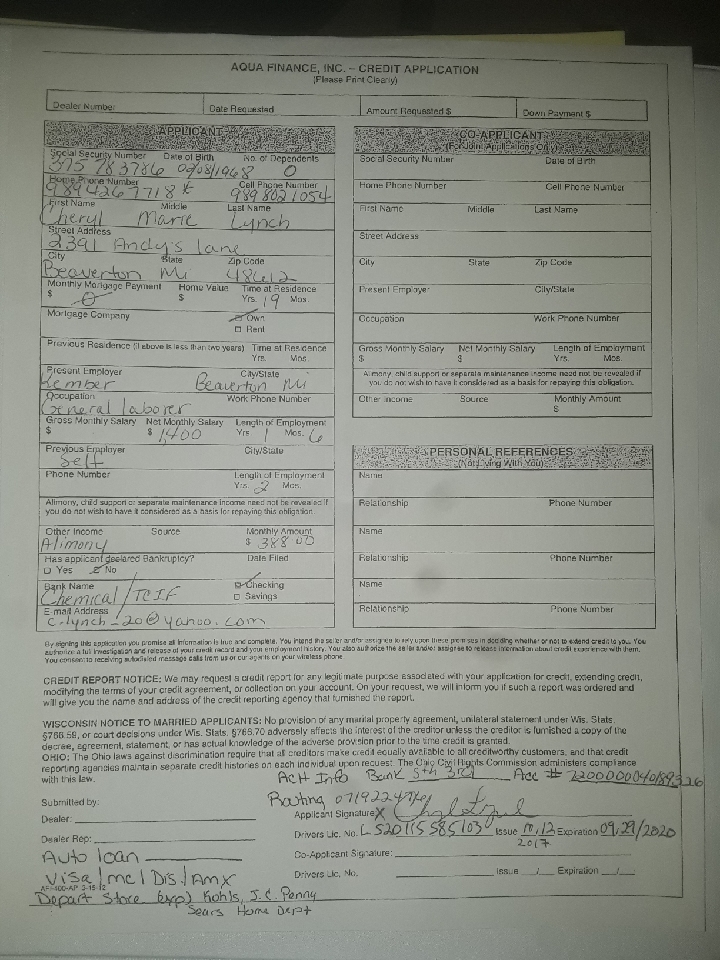 AQUA FINANCE, INC. – CREDIT APPLICATION
(Please Print Clearly)
Dealer Number Date Requested Amount Requested $ Down Payment $
APPLICANT
Social Security Number Date of Birth No. of Dependents
375 783786 09/08/1968 0
Home Phone Number Cell Phone Number
989 426 7718 * 989 802 1054
First Name Middle Last Name
Cheryl Marie Lynch
Street Address
2391 Andy's lane
City State Zip Code
Beaverton Mi 48612
Monthly Mortgage Payment Home Value Time at Residence
$ 0 $ Yrs. 19 Mos.
Mortgage Company
Own
Rent
Previous Residence (if above is less than two years) Time at Residence
Yrs. Mos.
Present Employer City/State
Beaverton Mi
Occupation Work Phone Number
General laborer
Gross Monthly Salary Net Monthly Salary Length of Employment
$ $ 1,400 Yrs. 1 Mos. 6
Previous Employer City/State
Self
Phone Number Length of Employment
Yrs. 2 Mos.
Alimony, child support or separate maintenance income need not be revealed if
you do not wish to have it considered as a basis for repaying this obligation.
Other Income Source Monthly Amount
Alimony $ 388.00
Has applicant declared Bankruptcy? Date Filed
Yes No
Bank Name Checking
Chemical / TCIF Savings
E-mail Address
c-lynch-20@yahoo.com
CO-APPLICANT
(For Joint Applications Only)
Social Security Number Date of Birth
Home Phone Number Cell Phone Number
First Name Middle Last Name
Street Address
City State Zip Code
Present Employer City/State
Occupation Work Phone Number
Gross Monthly Salary Net Monthly Salary Length of Employment
$ $ Yrs. Mos.
Alimony, child support or separate maintenance income need not be revealed if
you do not wish to have it considered as a basis for repaying this obligation.
Other Income Source Monthly Amount
$
PERSONAL REFERENCES
(Not Living With You)
Name
Relationship Phone Number
Name
Relationship Phone Number
Name
Relationship Phone Number
By signing this application you promise all information is true and complete. You intend the seller and/or assignee to rely upon these promises in deciding whether or not to extend credit to you. You
authorize a full investigation and release of your credit record and your employment history. You also authorize the seller and/or assignee to release information about credit experience with them.
You consent to receiving autodialed message calls from us or our agents on your wireless phone
CREDIT REPORT NOTICE: We may request a credit report for any legitimate purpose associated with your application for credit, extending credit,
modifying the terms of your credit agreement, or collection on your account. On your request, we will inform you if such a report was ordered and
will give you the name and address of the credit reporting agency that furnished the report.
WISCONSIN NOTICE TO MARRIED APPLICANTS: No provision of any marital property agreement, unilateral statement under Wis. Stats.
§766.59, or court decisions under Wis. Stats. §766.70 adversely affects the interest of the creditor unless the creditor is furnished a copy of the
decree, agreement, statement, or has actual knowledge of the adverse provision prior to the time credit is granted.
OHIO: The Ohio laws against discrimination require that all creditors make credit equally available to all creditworthy customers, and that credit
reporting agencies maintain separate credit histories on each individual upon request. The Ohio Civil Rights Commission administers compliance
with this law.
ACH Info Bank 5th 3rd Acc #
Routing
Submitted by:
Dealer:
Applicant Signature X
Drivers Lic. No. L 520 115 585 103 Issue 10, 12 Expiration 09, 29/2020
2017
Dealer Rep:
Co-Applicant Signature:
Auto loan
Drivers Lic. No. Issue / Expiration /
Visa/mc/Dis/Amx
AFI-400-AP 3-15-12
Depart Store (xp) Kohls, J.C. Penny
Sears Home Dept